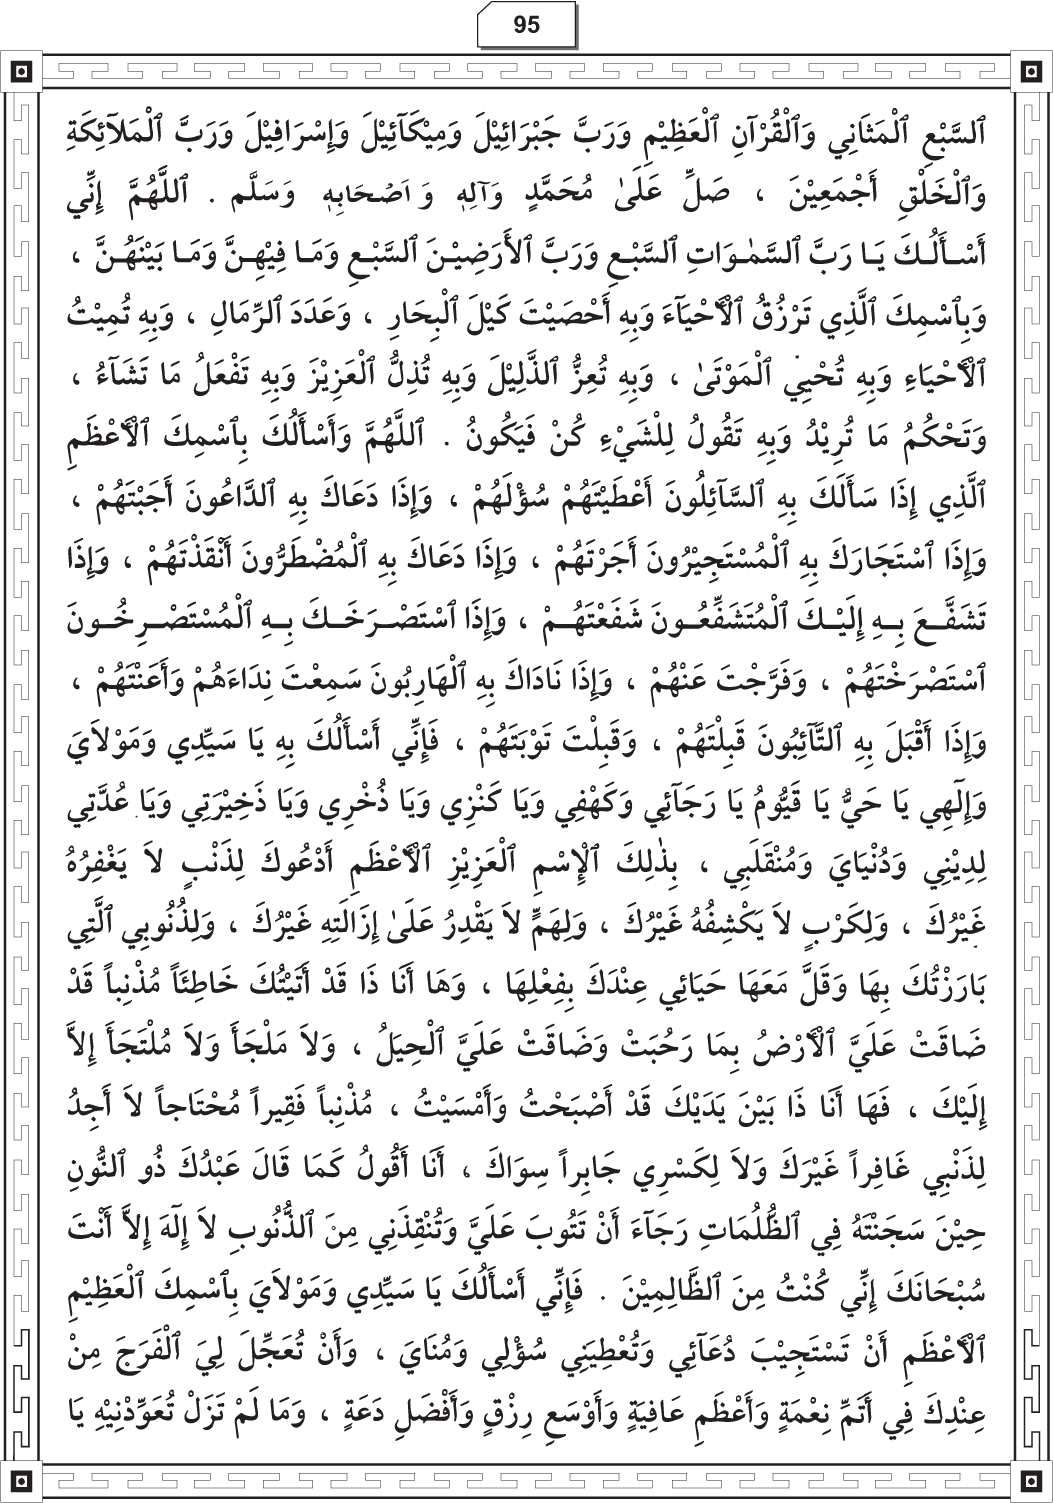 95
ٱلسَّبْعِ ٱلْمَثَانِي وَٱلْقُرْآنِ ٱلْعَظِيْمِ وَرَبَّ جَبْرَائِيْلَ وَمِيْكَآئِيْلَ وَإِسْرَافِيْلَ وَرَبَّ ٱلْمَلَآئِكَةِ
وَٱلْخَلْقِ أَجْمَعِيْنَ ، صَلِّ عَلَىٰ مُحَمَّدٍ وَآلِهِ وَ اَصْحَابِهِ وَسَلَّم . ٱللَّهُمَّ إِنِّي
أَسْأَلُكَ يَا رَبَّ ٱلسَّمٰوَاتِ ٱلسَّبْعِ وَرَبَّ ٱلأَرَضِيْنَ ٱلسَّبْعِ وَمَا فِيْهِنَّ وَمَا بَيْنَهُنَّ ،
وَبِٱسْمِكَ ٱلَّذِي تَرْزُقُ ٱلْأَحْيَآءَ وَبِهِ أَحْصَيْتَ كَيْلَ ٱلْبِحَارِ ، وَعَدَدَ ٱلرِّمَالِ ، وَبِهِ تُمِيْتُ
ٱلْأَحْيَاءِ وَبِهِ تُحْيِي ٱلْمَوْتَىٰ ، وَبِهِ تُعِزُّ ٱلذَّلِيْلَ وَبِهِ تُذِلُّ ٱلْعَزِيْزَ وَبِهِ تَفْعَلُ مَا تَشَآءُ ،
وَتَحْكُمُ مَا تُرِيْدُ وَبِهِ تَقُولُ لِلْشَيْءِ كُنْ فَيَكُونُ . ٱللَّهُمَّ وَأَسْأَلُكَ بِٱسْمِكَ ٱلْأَعْظَمِ
ٱلَّذِي إِذَا سَأَلَكَ بِهِ ٱلسَّآئِلُونَ أَعْطَيْتَهُمْ سُؤْلَهُمْ ، وَإِذَا دَعَاكَ بِهِ ٱلدَّاعُونَ أَجَبْتَهُمْ ،
وَإِذَا ٱسْتَجَارَكَ بِهِ ٱلْمُسْتَجِيْرُونَ أَجَرْتَهُمْ ، وَإِذَا دَعَاكَ بِهِ ٱلْمُضْطَرُّونَ أَنْقَذْتَهُمْ ، وَإِذَا
تَشَفَّعَ بِهِ إِلَيْكَ ٱلْمُتَشَفِّعُونَ شَفَعْتَهُمْ ، وَإِذَا ٱسْتَصْرَخَكَ بِهِ ٱلْمُسْتَصْرِخُونَ
ٱسْتَصْرَخْتَهُمْ ، وَفَرَّجْتَ عَنْهُمْ ، وَإِذَا نَادَاكَ بِهِ ٱلْهَارِبُونَ سَمِعْتَ نِدَاءَهُمْ وَأَعَنْتَهُمْ ،
وَإِذَا أَقْبَلَ بِهِ ٱلتَّآئِبُونَ قَبِلْتَهُمْ ، وَقَبِلْتَ تَوْبَتَهُمْ ، فَإِنِّي أَسْأَلُكَ بِهِ يَا سَيِّدِي وَمَوْلاَيَ
وَإِلٓهِي يَا حَيُّ يَا قَيُّومُ يَا رَجَآئِي وَكَهْفِي وَيَا كَنْزِي وَيَا ذُخْرِي وَيَا ذَخِيْرَتِي وَيَا عُدَّتِي
لِدِيْنِي وَدُنْيَايَ وَمُنْقَلَبِي ، بِذٰلِكَ ٱلْإِسْمِ ٱلْعَزِيْزِ ٱلْأَعْظَمِ أَدْعُوكَ لِذَنْبٍ لاَ يَغْفِرُهُ
غَيْرُكَ ، وَلِكَرْبٍ لاَ يَكْشِفُهُ غَيْرُكَ ، وَلِهَمٍّ لاَ يَقْدِرُ عَلَىٰ إِزَالَتِهِ غَيْرُكَ ، وَلِذُنُوبِي ٱلَّتِي
بَارَزْتُكَ بِهَا وَقَلَّ مَعَهَا حَيَائِي عِنْدَكَ بِفِعْلِهَا ، وَهَا أَنَا ذَا قَدْ أَتَيْتُكَ خَاطِئَاً مُذْنِباً قَدْ
ضَاقَتْ عَلَيَّ ٱلْأَرْضُ بِمَا رَحُبَتْ وَضَاقَتْ عَلَيَّ ٱلْحِيَلُ ، وَلاَ مَلْجَأَ وَلاَ مُلْتَجَأَ إِلاَّ
إِلَيْكَ ، فَهَا أَنَا ذَا بَيْنَ يَدَيْكَ قَدْ أَصْبَحْتُ وَأَمْسَيْتُ ، مُذْنِباً فَقِيراً مُحْتَاجاً لاَ أَجِدُ
لِذَنْبِي غَافِراً غَيْرَكَ وَلاَ لِكَسْرِي جَابِراً سِوَاكَ ، أَنَا أَقُولُ كَمَا قَالَ عَبْدُكَ ذُو ٱلنُّونِ
حِيْنَ سَجَنْتَهُ فِي ٱلظُّلُمَاتِ رَجَآءَ أَنْ تَتُوبَ عَلَيَّ وَتُنْقِذَنِي مِنَ ٱلذُّنُوبِ لاَ إِلٓهَ إِلاَّ أَنْتَ
سُبْحَانَكَ إِنِّي كُنْتُ مِنَ ٱلظَّالِمِيْنَ . فَإِنِّي أَسْأَلُكَ يَا سَيِّدِي وَمَوْلاَيَ بِٱسْمِكَ ٱلْعَظِيْمِ
ٱلْأَعْظَمِ أَنْ تَسْتَجِيْبَ دُعَآئِي وَتُعْطِيَنِي سُؤْلِي وَمُنَايَ ، وَأَنْ تُعَجِّلَ لِيَ ٱلْفَرَجَ مِنْ
عِنْدِكَ فِي أَتَمِّ نِعْمَةٍ وَأَعْظَمِ عَافِيَةٍ وَأَوْسَعِ رِزْقٍ وَأَفْضَلِ دَعَةٍ ، وَمَا لَمْ تَزَلْ تُعَوِّدْنِيْهِ يَا